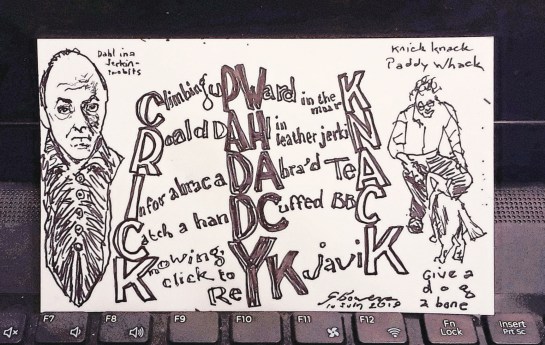 Dahl in a
Jerkin-
Knick Knack
Paddy Whack
Climbing uPWard in the
K
Roald DAHl in leather jerkiN
Infor abrac a DAbra'd TeA
Catch a hanDCuffed BBC
Knowing
click to
ReYKjaviK
Give a
dog
a bone
F7 F8 F9 F10 F11 F12 Fn Insert
Lock Prt Sc